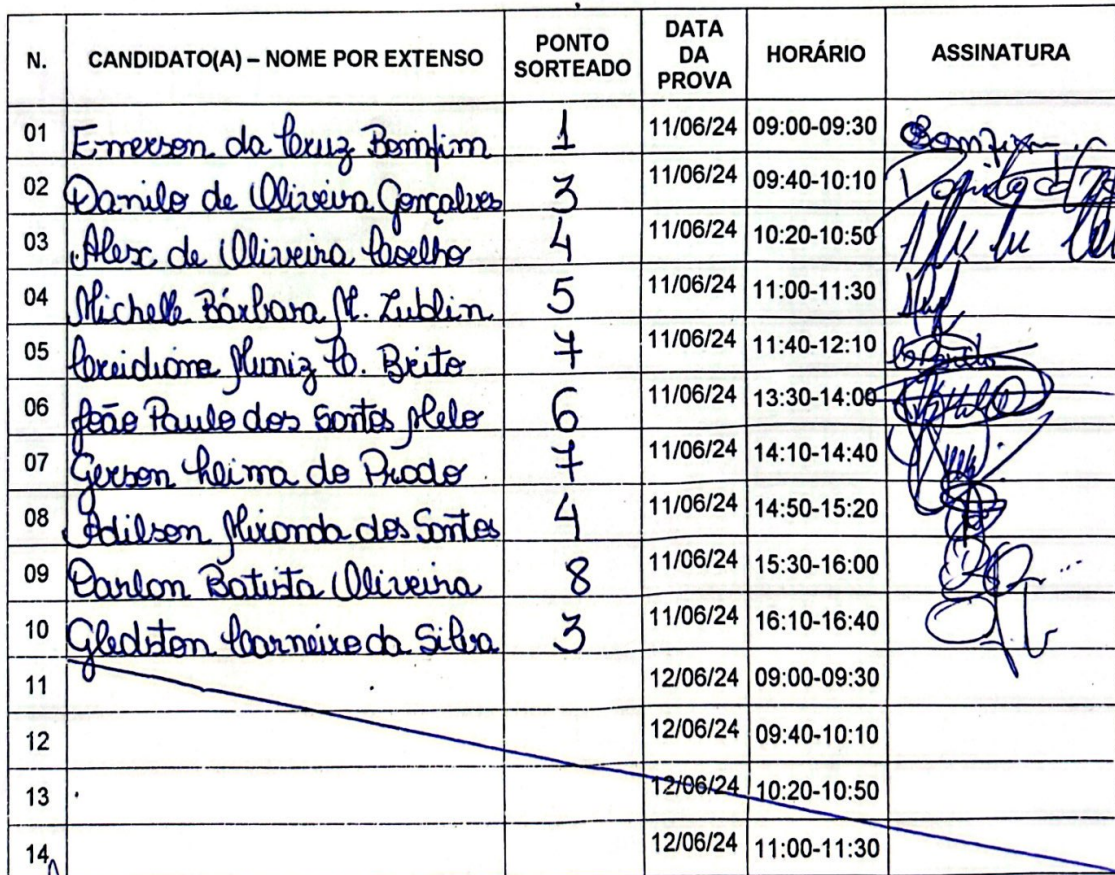 N. CANDIDATO(A) – NOME POR EXTENSO PONTO SORTEADO DATA DA PROVA HORÁRIO ASSINATURA
01 Emerson da Cruz Bomfim 1 11/06/24 09:00-09:30 Bomfim
02 Danilo de Oliveira Gonçalves 3 11/06/24 09:40-10:10
03 Alex de Oliveira Coelho 4 11/06/24 10:20-10:50
04 Michelle Bárbara M. Zublin 5 11/06/24 11:00-11:30
05 Creidiane Muniz C. Brito 7 11/06/24 11:40-12:10
06 João Paulo dos Santos Melo 6 11/06/24 13:30-14:00
07 Gerson Leima do Prado 7 11/06/24 14:10-14:40
08 Adilson Miranda dos Santos 4 11/06/24 14:50-15:20
09 Darlon Batista Oliveira 8 11/06/24 15:30-16:00
10 Gledston Carneiro da Silva 3 11/06/24 16:10-16:40
11 12/06/24 09:00-09:30
12 12/06/24 09:40-10:10
13 12/06/24 10:20-10:50
14 12/06/24 11:00-11:30